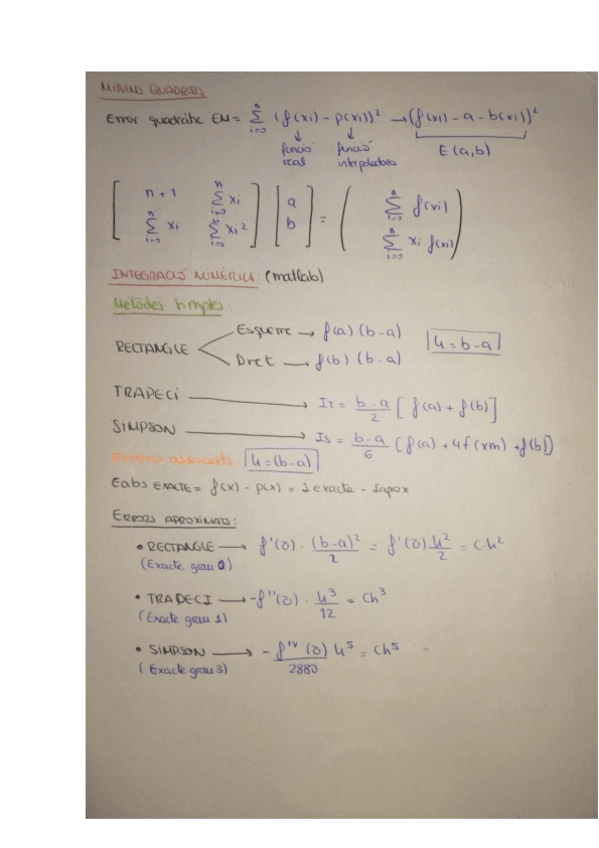 MÍNIMS QUADRATS
Error quadràtic EN = Σ_{i=0}^{n} (f(xi) - p(xi))² → (f(xi) - a - b(xi))²
↓ funció real ↓ funció interpoladora E(a,b)
[ n+1 Σ_{i=0}^{n} xi ] [ a ] = ( Σ_{i=0}^{n} f(xi) )
[ Σ_{i=0}^{n} xi Σ_{i=0}^{n} xi² ] [ b ] ( Σ_{i=0}^{n} xi·f(xi) )
INTEGRACIÓ NUMÈRICA: (matlab)
Metòdes simples:
Esquerre → f(a) (b-a)
RECTANGLE h = b-a
Dret → f(b) (b-a)
TRAPECI → IT = b-a/2 [f(a) + f(b)]
SIMPSON → Is = b-a/6 [f(a) + 4f(xm) + f(b)]
Errors associats: h=(b-a)
Eabs EXACTE = f(x) - p(x) = I exacta - Iapox
ERRORS APROXIMATS:
• RECTANGLE → f'(z) · (b-a)²/2 = f'(z) h²/2 = C·h²
(Exacte grau 0)
• TRAPECI → -f''(z) · h³/12 = Ch³
(Exacte grau 1)
• SIMPSON → - f^{IV}(z)/2880 h⁵ = Ch⁵
(Exacte grau 3)